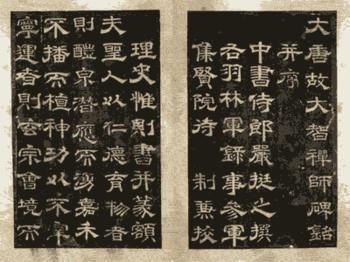 大唐故大智禪師碑銘
并序
中書侍郎嚴挺之撰
右羽林軍錄事參軍
集賢院待制兼校
理史惟則書并篆額
夫聖人以仁德育物者
則醴泉潛應而湧嘉禾
不播而植神功以不宰
寧運者則玄宗會境而